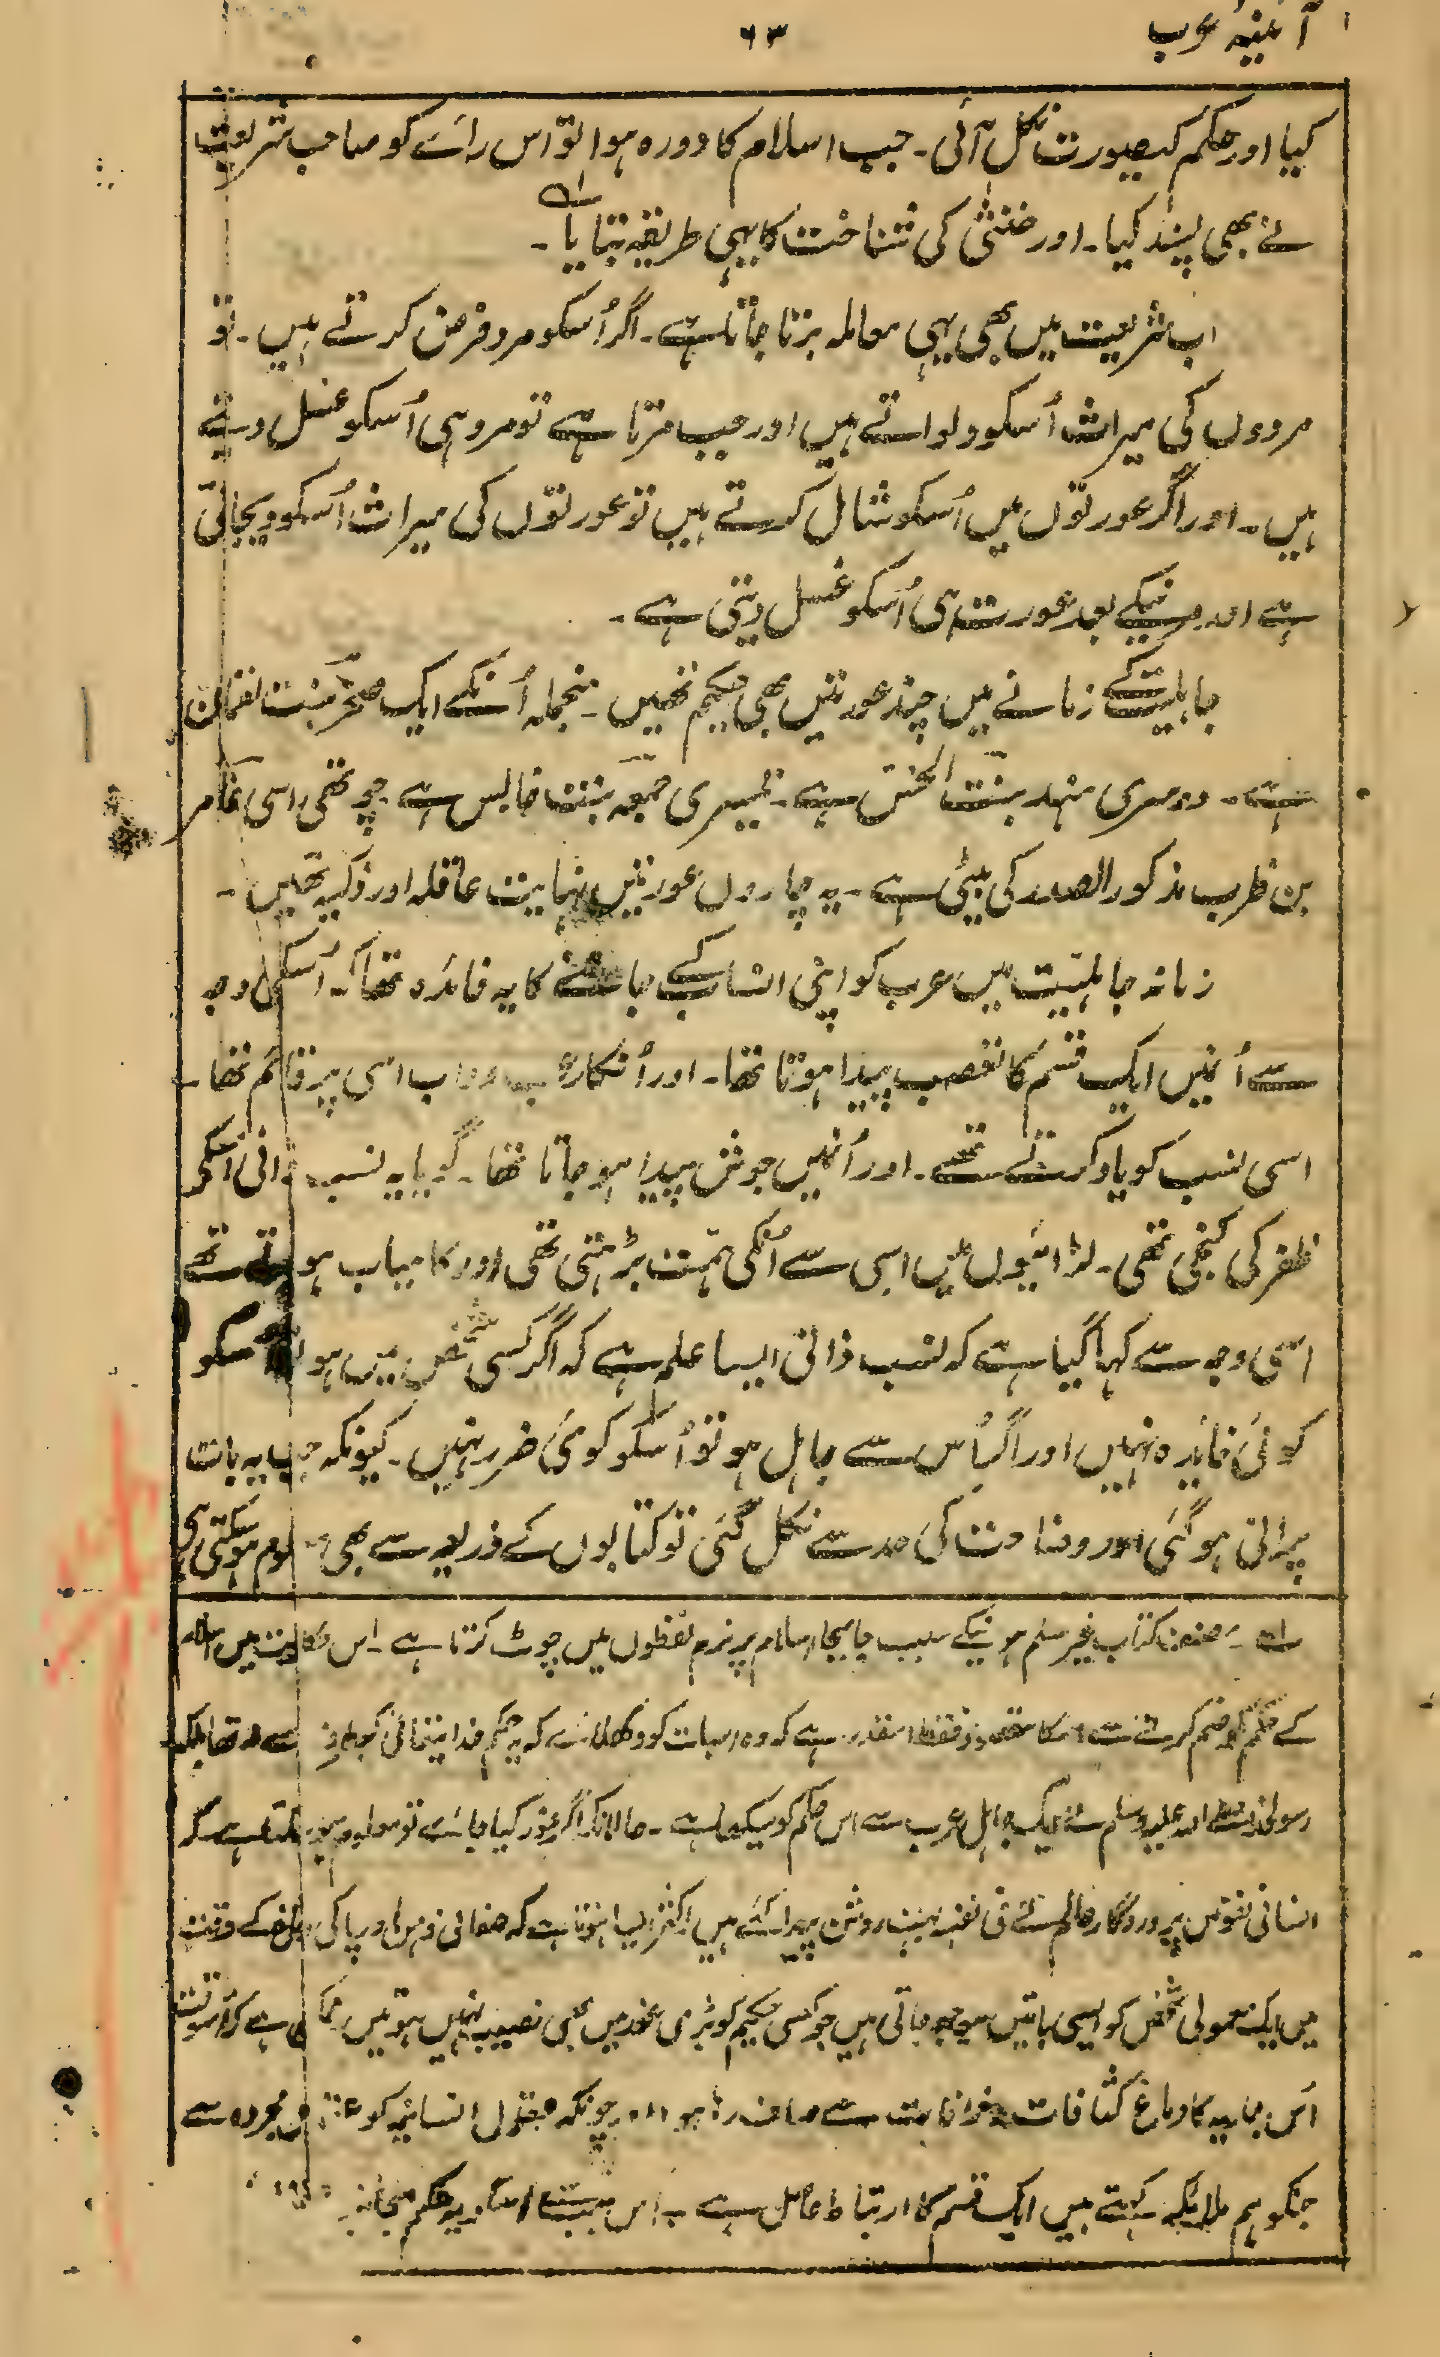 آئینۂ عرب
۶۳
کیا اور حکم کیصورت نکل آئی۔ جب اسلام کا دورہ ہوا تو اس رائے کو صاحب شریعت
نے بھی پسند کیا۔ اور خنثیٰ کی شناخت کا یہی طریقہ بتایا۔
اب شریعت میں بھی یہی معاملہ برتا جاتا ہے۔ اگر اُسکو مرد فرض کرتے ہیں۔ تو
مردوں کی میراث اُسکو دلواتے ہیں اور جب مرتا ہے تو مرد ہی اُسکو غسل دیتے
ہیں۔ اور اگر عورتوں میں اُسکو شامل کرتے ہیں تو عورتوں کی میراث اُسکو دیجاتی
ہے اور مرنیکے بعد عورت ہی اُسکو غسل دیتی ہے۔
جاہلیت کے زمانے میں چند عورتیں بھی حکیم تھیں۔ منجملہ اُنکے ایک صحر بنت لقمان
ہے۔ دوسری ہند بنت الخس ہے۔ تیسری جمعہ بنت حابس ہے چوتھی اسی عامر
بن ظرب مذکور الصدر کی بیٹی ہے۔ یہ چاروں عورتیں نہایت عاقلہ اور ذکیہ تھیں۔
زمانہ جاہلیت میں عرب کو اپنی انساب کے جاننے کا یہ فائدہ تھا کہ اُسکی وجہ
سے اُنمیں ایک قسم کا تعصب پیدا ہوتا تھا۔ اور اُنکا رعب داب اسی پر قائم تھا۔
اسی نسب کو یاد کرتے تھے۔ اور اُنمیں جوش پیدا ہو جاتا تھا۔ گویا یہ نسب دانی اُنکی
ظفر کی کنجی تھی۔ لڑائیوں میں اسی سے اُنکی ہمت بڑہتی تھی اور کامیاب ہوتے تھے
اسی وجہ سے کہا گیا ہے کہ نسب دانی ایسا علم ہے کہ اگر کسی شخص میں ہو تو اُسکو
کوئی فائدہ نہیں اور اگر اُس سے جاہل ہو تو اُسکو کوئی ضرر نہیں۔ کیونکہ جب یہ بات
پرانی ہو گئی اور وضاحت کی حد سے نکل گئی تو کتابوں کے ذریعہ سے بھی معلوم ہو سکتی ہی
لہ۔ مصنف کتاب غیر مسلم ہونیکے سبب جابجا اسلام پر نرم لفظوں میں چوٹ کرتا ہے۔ اس حکایت میں اسلام
کے حکم کو ضم کرنے سے اسکا مقصود فقط اسقدر ہے کہ وہ اسبات کو دکھلائے کہ یہ حکم خدا یتعالیٰ کیطرف سے نہ تھا بلکہ
رسول صلے اللہ علیہ وسلم نے ایک جاہل عرب سے اس حکم کو سیکھا ہے۔ حالانکہ اگر غور کیا جائے تو معلوم ہو سکتا ہے کہ
انسانی نفوس پروردگار عالم نے فی نفسہ بہت روشن پیدا کئے ہیں اکثر ایسا ہوتا ہے کہ صفائی ذہن اور پاکی دماغ کے وقت
میں ایک معمولی شخص کو ایسی باتیں سوجھ جاتی ہیں جو کسی حکیم کو بڑی غور میں بھی نصیب نہیں ہوتیں ممکن ہے کہ اُسوقت
اُس جاریہ کا دماغ کثافات و خرافات سے صاف رہا ہو اور چونکہ عقول انسانیہ کو عقول مجردہ سے
جنکو ہم ملایکہ کہتے ہیں ایک قسم کا ارتباط حاصل ہے۔ اس نسبت اُسکو یہ حکم منجانب